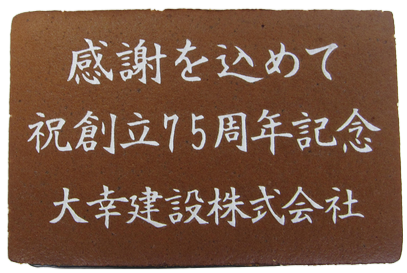 感謝を込めて
祝創立75周年記念
大幸建設株式会社